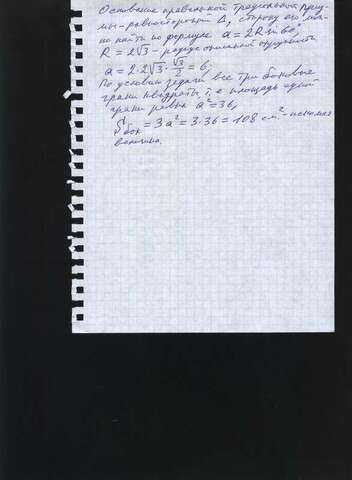 Основание правильной треугольной приз-
мы-равносторонний Δ, сторону его мож-
но найти по формуле a = 2R sin 60°,
R = 2√3 - радиус описанной окружности
a = 2·2√3·√3/2 = 6;
По условию задачи все три боковые
грани квадраты, т.е площадь одной
грани равна a² = 36,
Sбок = 3a² = 3·36 = 108 см² - искомая
величина.